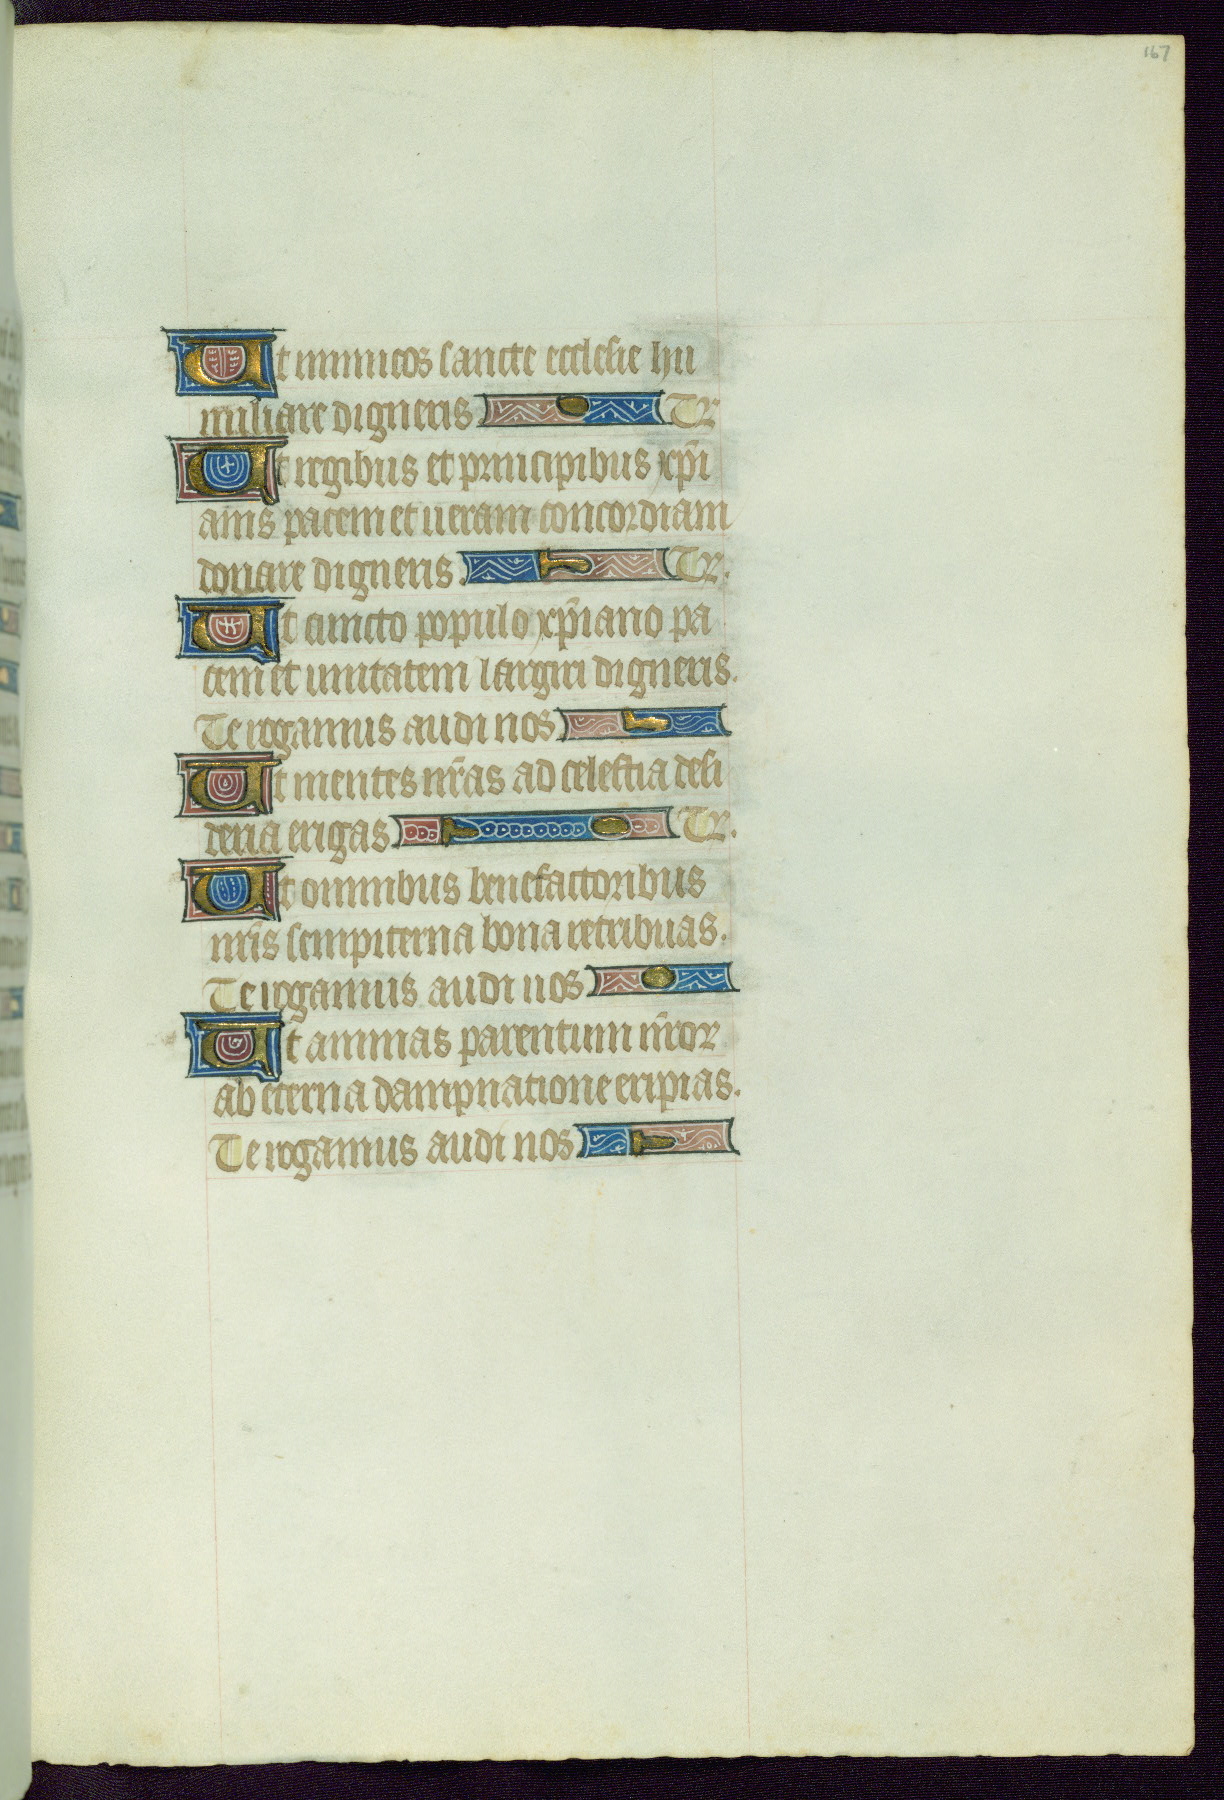 167
Ut inimicos sancte ecclesie hu
miliare digneris Tr
Ut regibus et principibus xp̄i
anis pacem et ueram concordiam
donare digneris. Tr.
Ut cuncto populo xp̄iano pa
cem et unitatem largiri digneris.
Te rogamus audi nos.
Ut mentes nr̄as ad celestia desi
deria erigas. Tr.
Ut omnibus benefactoribus
nr̄is sempiterna bona retribuas.
Te rogamus audi nos
Ut animas parentum nr̄or
ab eterna dampnatione eripias.
Te rogamus audi nos